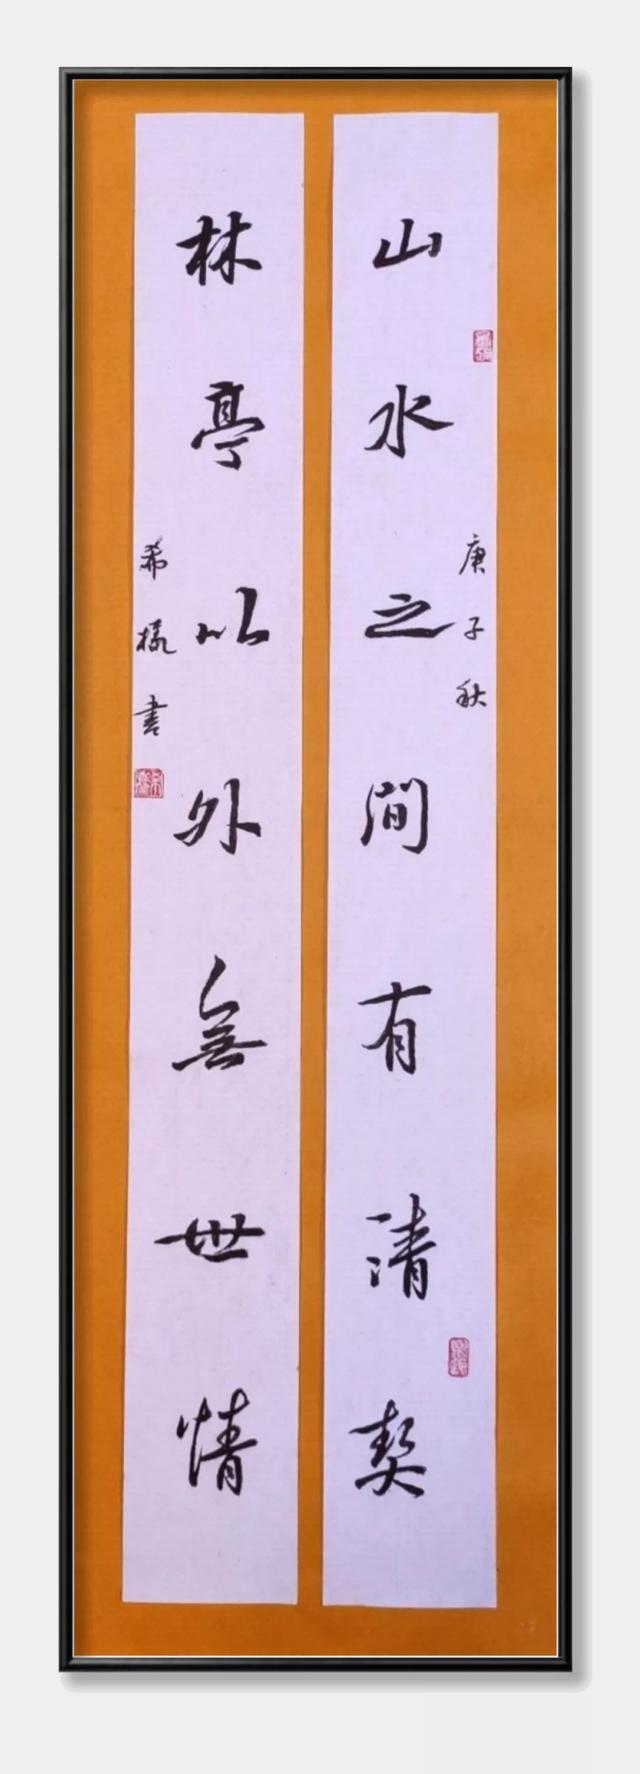 庚子秋
山水之間有清契
林亭以外無世情
希 書